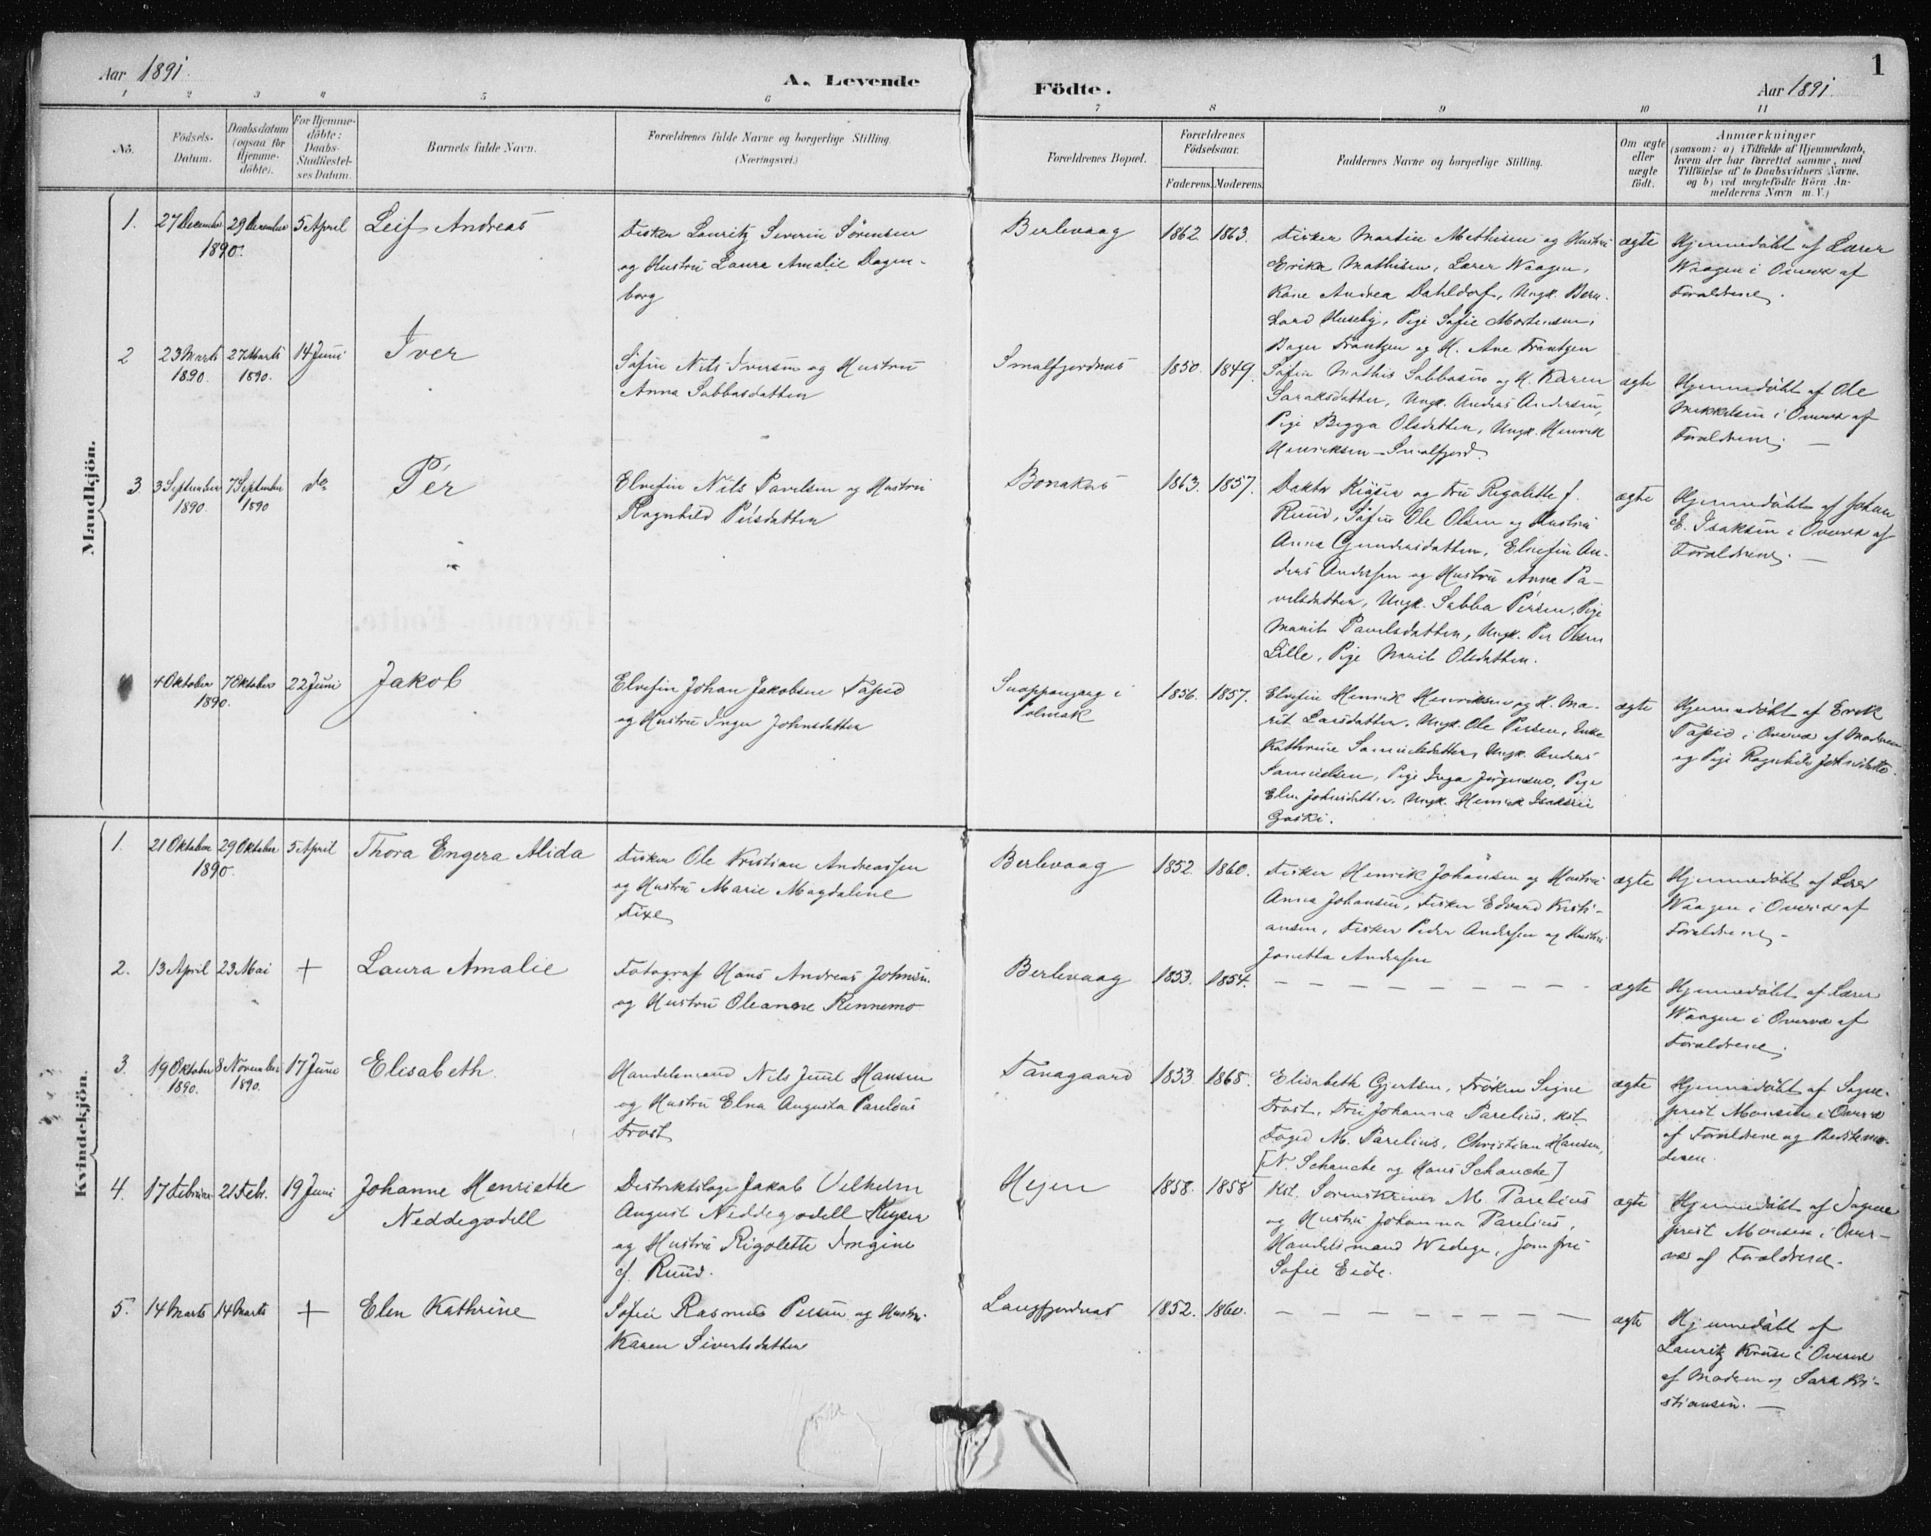 Aar 1891.
A. Levende
Födte.
Aar 1891.
1
1 2 3 4 5 6 7 8 9 10 11
Nö.
Födsels-
Datum.
Daabsdatum
(ogsaa for
Hjemme-
döbte).
For Hjemme-
döbte:
Daabs-
Stadfæstel-
ses Datum.
Barnets fulde Navn.
Forældrenes fulde Navne og borgerlige Stilling.
(Næringsvei.)
Forældrenes Bopæl.
Forældrenes
Födselsaar.
Faderens. Moderens.
Faddernes Navne og borgerlige Stilling.
Om ægte
eller
uægte
födt.
Anmærkninger
(saasom: a) i Tilfælde af Hjemmedaab,
hvem der har forrettet samme, med
Tilföielse af to Daabsvidners Navne,
og b) ved uegtefödte Börn An-
melderens Navn m. V.)
Mandkjön.
1. 27 December 29 December 5 April Leif Andreas
1890.
Fisker Lauritz Severin Sörensen
og Hustru Laura Amalie Dagen-
borg
Berlevaag 1862. 1863.
Fisker Martin Mathisen og Hustru
Erika Mathisen, Lærer Waagen,
Kone Andrea Dahldorf, Ungk. Bern-
hard Huseby, Pige Sofie Mortensen,
Bager Frantzen og H. Ane Frantzen
ægte
Hjemmedöbt af Lærer
Waagen i Overvær af
Forældrene.
2 23 Marts 27 Marts 14 Juni Iver
1890. 1890.
Söfin Nils Iversen og Hustru
Anna Sabbasdatter
Smalfjordnæs 1850. 1849.
Söfin Mathis Sabbasen og H. Karen
Saraksdatter, Ungk. Andras Andersen,
Pige Begga Olsdatter, Ungk. Henrik
Henriksen - Smalfjord.
ægte
Hjemmedöbt af Ole
Mikkelsen i Overvær af
Forældrene. —
3. 3 September 7 September do. Pér
1890. 1890
Elvefin Nils Pavelsen og Hustru
Ragnhild Pérsdatter
Bonakas 1863. 1857.
Doktor Kiyser og Fru Rigolette f.
Ruud, Söfin Ole Olsen og Hustru
Anna Gundersdatter, Elvefin An-
ders Andersen og Hustru Anna Pa-
velsdatter, Ungk. Sabba Pérsen, Pige
Marit Pavelsdatter, Ungk. Per Olsen
Lille, Pige Marit Olsdatter.
ægte
Hjemmedöbt af Johan
E. Isaksen i Overvær af
Forældrene. —
4 Oktober 7 Oktober 22 Juni Jakob
1890.
Elvefin Johan Jakobsen Tapio
og Hustru Inger Johnsdatter
i
Polmak
1856. 1857.
Elvefin Henrik Henriksen og H. Ma-
rit Larsdatter, Ungk. Ole Persen, Enke
Kathrine Samuelsdatter, Ungk. Andras
Samuelsen, Pige Inga Jörgensen, Pige
Elen Johnsdatter, Ungk. Henrik Isaksen
Gaski.
ægte
Hjemmedöbt af Erik
Tapio i Overvær af Moderen
og Pige Ragnhild Johnsdatter.
Kvindekjön.
1. 21 Oktober 29 Oktober 5 April Thora Engera Alida
1890.
Fisker Ole Kristian Andreassen
og Hustru Marie Magdalene
Fixe
Berlevaag 1852. 1860.
Fisker Henrik Johansen og Hustru
Anna Johansen, Fisker Edvard Kristi-
ansen, Fisker Peder Andersen og Hustru
Jonetta Andersen
ægte
Hjemmedöbt af Lærer
Waagen i Overvær af
Forældrene.
2. 13 April 23 Mai + Laura Amalie
Fotograf Hans Andreas Johnsen
og Hustru Oleanne Rennemo
Berlevaag 1853. 1854. — — — — — — — — — ægte
Hjemmedöbt af Lærer
Waagen i Overvær af
Forældrene.
3. 19 Oktober 8 November 17 Juni Elisabeth
1890. 1890.
Handelsmand Nils Juul Hansen
og Hustru Elna Augusta Parelius
Frost
Tanagaard 1853. 1865.
Elisabeth Gjertsen, Fröken Signe
Frost, Fru Johanna Parelius, kst.
Foged M. Parelius, Christian Hansen,
[N. Schancke og Hans Schancke]
ægte
Hjemmedöbt af Sogne-
prest Monsen i Overvær
af Forældrene og Bedstemo-
deren.
4. 17 Februar 21 Febr. 19 Juni Johanne Henriette
Neddegodell
Distriktslæge Jakob Vilhelm
August Neddegodell Keyser
og Hustru Rigolette Imgine
f. Ruud.
1858. 1858
Kst. Sorenskriver M. Parelius
og Hustru Johanna Parelius,
Handelsmand Wedege, Jomfru
Sofie Eide.
ægte
Hjemmedöbt af Sogne-
prest Monsen i Over-
vær af Forældrene.
5. 14 Marts 14 Marts + Elen Kathrine
Söfin Rasmus Persen og Hustru
Karen Sivertsdatter
Langfjordnæs 1852. 1860. — — — — — — — — — ægte
Hjemmedöbt af
Lauritz Kruse i Overvær
af Moderen og Sara Kri-
stiansen. —